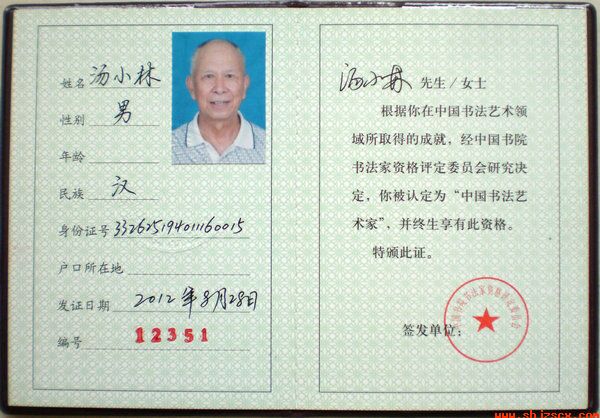 姓名 汤小林
性别 男
年龄
民族 汉
身份证号 332625194011160015
户口所在地
发证日期 2012年8月28日
编号 12351
汤小林 先生/女士
根据你在中国书法艺术领
域所取得的成就，经中国书院
书法家资格评定委员会研究决
定，你被认定为“中国书法艺
术家”，并终生享有此资格。
特颁此证。
签发单位：
中国书院书法家资格评定委员会
www.shjzscx.com